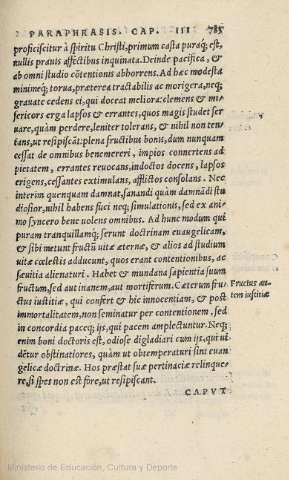 PARAPHRASIS. CAP. III 785
proficiscitur à spiritu Christi, primum casta puraq; est,
nullis prauis affectibus inquinata. Deinde pacifica, &
ab omni studio cōtentionis abhorrens. Ad hæc modesta
minimeq; torua, præterea tractabilis ac morigera, neq;
grauate cedens ei, qui doceat meliora: clemens & mi-
sericors erga lapsos & errantes, quos magis studet ser
uare, quàm perdere, leniter tolerans, & nihil non ten-
tans, ut resipiscāt: plena fructibus bonis, dum nunquam
cessat de omnibus benemereri, impios conuertens ad
pietatem, errantes reuocans, indoctos docens, lapsos
erigens, cessantes extimulans, afflictos consolans. Nec
interim quenquam damnat, sanandi quàm damnādi stu
diosior, nihil habens fuci neq; simulationis, sed ex ani-
mo syncero bene uolens omnibus. Ad hunc modum qui
puram tranquillamq; serunt doctrinam euangelicam,
& sibi metunt fructū uitæ æternæ, & alios ad studium
uitæ cœlestis adducunt, quos erant contentionibus, ac
sæuitia alienaturi. Habet & mundana sapientia suum
fructum, sed aut inanem, aut mortiferum. Cæterum fru-
ctus iustitiæ, qui confert & hic innocentiam, & post
immortalitatem, non seminatur per contentionem, sed
in concordia paceq; ijs, qui pacem amplectuntur. Neq;
enim boni doctoris est, odiose digladiari cum ijs, qui ui-
dētur obstinatiores, quàm ut obsemperaturi sint euan-
gelicæ doctrinæ. Hos præstat suæ pertinaciæ relinque-
re, si spes non est fore, ut resipiscant.
Fructus au-
tem iustitiæ
CAPVT
Ministerio de Educación, Cultura y Deporte